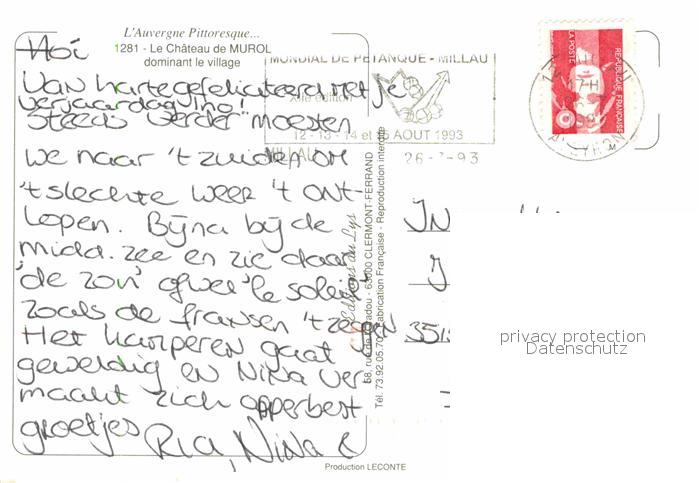 L'Auvergne Pittoresque...
1281 - Le Château de MUROL
dominant le village
Hoi
Van harte gefeliciteerd met je
verjaardag Ino!
Steeds verder moesten
we naar 't zuiden om
't slechte weer 't ont-
lopen. Bijna bij de
midd. zee en zie daar
'de zon' ofwel 'le soleil'
zoals de fransen 't zeggen
Het kamperen gaat
geweldig en Nina ver
maakt zich opperbest
groetjes Ria, Nina &
MONDIAL DE PETANQUE - MILLAU
12 - 13 - 14 et 15 AOUT 1993
MILLAU
26-7-93
LA POSTE
REPUBLIQUE FRANÇAISE
17H
AVEYRON
Editions du Lys
68, rue de - 63000 CLERMONT-FERRAND
Tél. 73.92.05.70 - Fabrication Française - Reproduction interdite
IN
J
351
privacy protection
Datenschutz
Production LECONTE